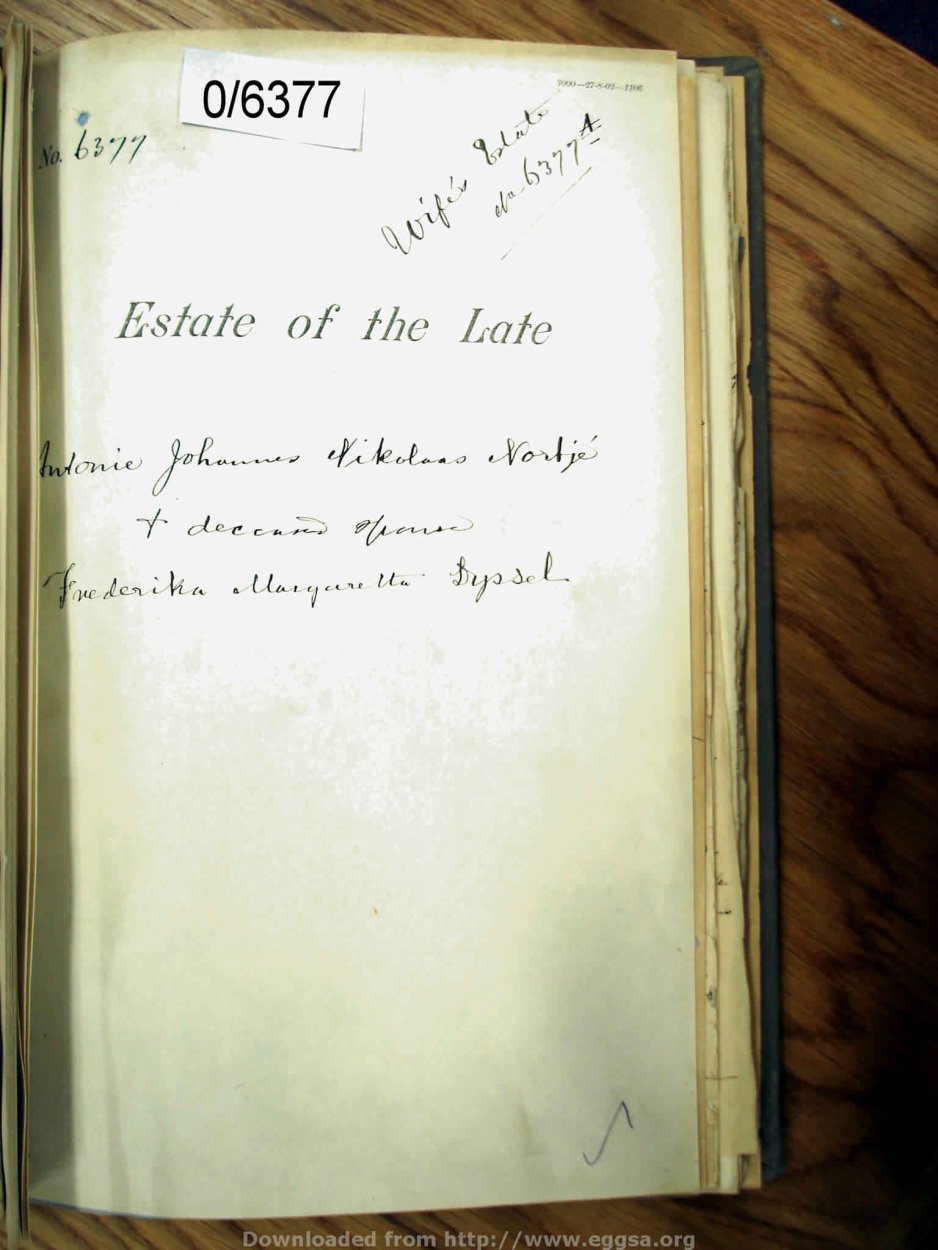 0/6377
7000—27-8-02—1106
No. 6377
Wife's Estate
No 6377A
Estate of the Late
Antonie Johannes Nikolaas Nortjé
+ deceased spouse
Frederika Margaretta Dyssel
Downloaded from http://www.eggsa.org